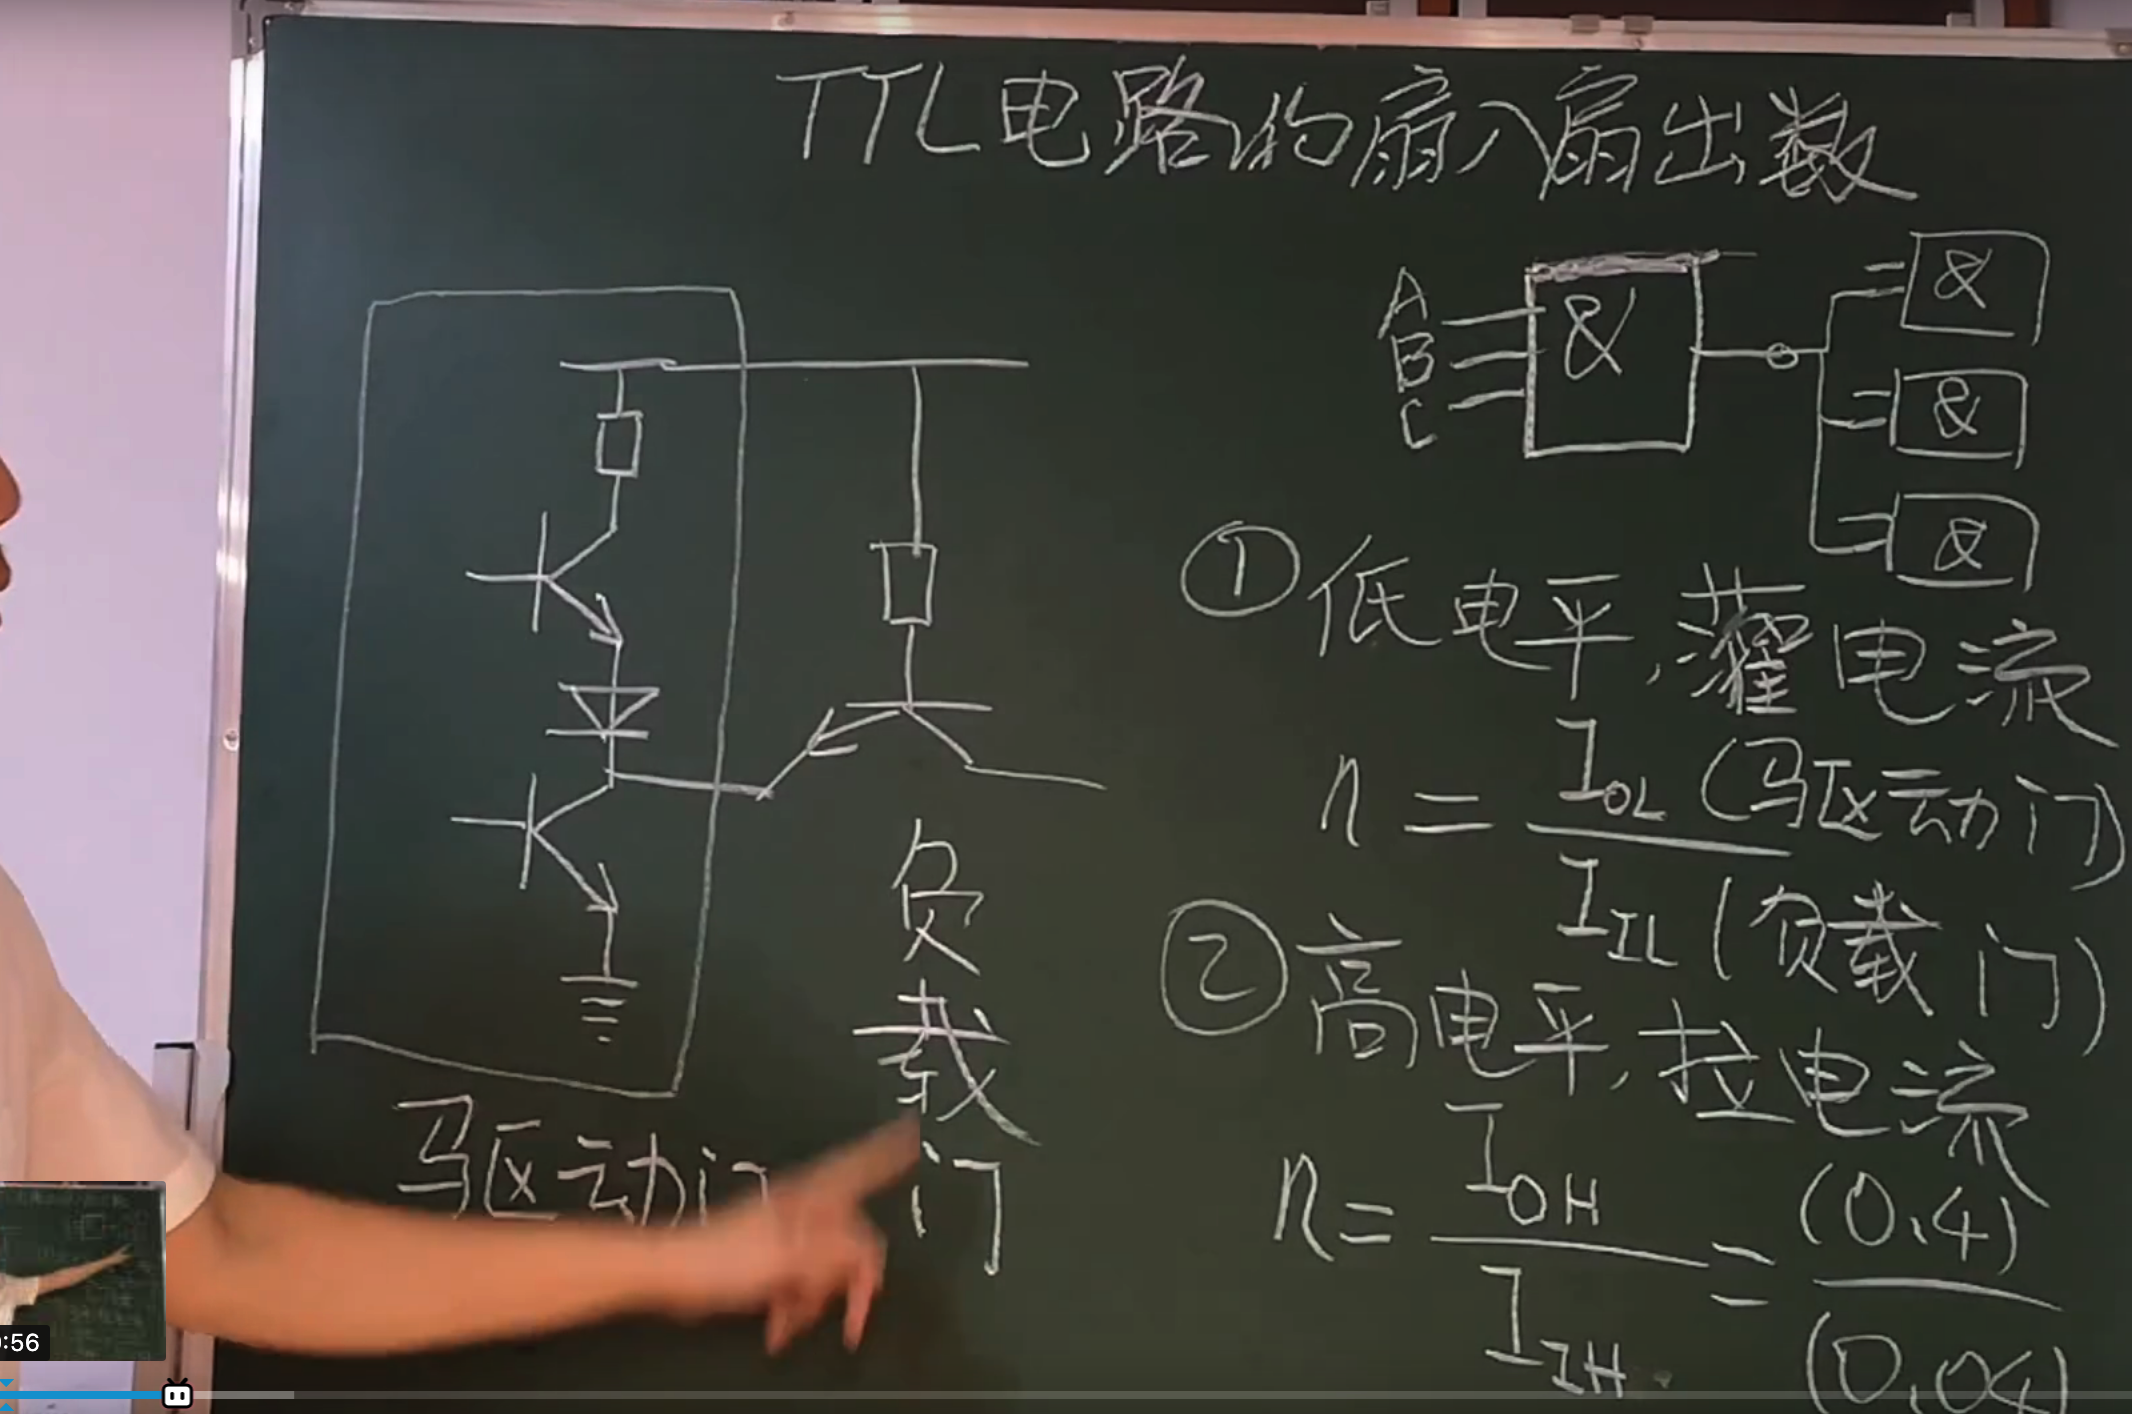 TTL电路的扇入扇出数
A
B
C
&
&
&
&
①低电平,灌电流
n = IOL (驱动门)
IIL (负载门)
②高电平,拉电流
n = IOH = (0.4)
IIH (0.04)
负载门
驱动门
:56